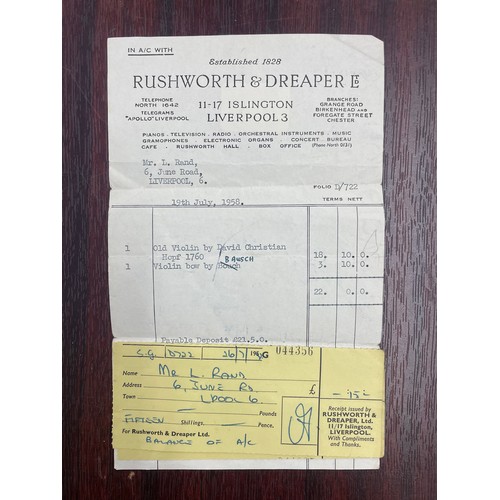 IN A/C WITH
Established 1828
RUSHWORTH & DREAPER LTD
TELEPHONE
NORTH 1642
TELEGRAMS
"APOLLO" LIVERPOOL
11-17 ISLINGTON
LIVERPOOL 3
BRANCHES:
GRANGE ROAD
BIRKENHEAD AND
FOREGATE STREET
CHESTER
PIANOS . TELEVISION . RADIO . ORCHESTRAL INSTRUMENTS . MUSIC
GRAMOPHONES . ELECTRONIC ORGANS . CONCERT BUREAU
CAFE . RUSHWORTH HALL . BOX OFFICE (Phone North 0131)
Mr. L. Rand,
6, June Road,
LIVERPOOL, 6.
FOLIO D/722
19th July, 1958.
TERMS NETT
1 Old Violin by David Christian
Hopf 1760 18. 10. 0.
BAUSCH
1 Violin bow by 3. 10. 0.
22. 0. 0.
Payable Deposit £21.5.0.
S.G. D722 26/7/1958 G 044356
Name MR L. RAND
Address 6, JUNE RD
Town L'POOL 6.
Pounds
FIFTEEN Shillings, — Pence,
For Rushworth & Dreaper Ltd.
BALANCE OF A/C
£ — 15 —
Receipt issued by
RUSHWORTH &
DREAPER, Ltd.
11/17 Islington,
LIVERPOOL.
With Compliments
and Thanks.